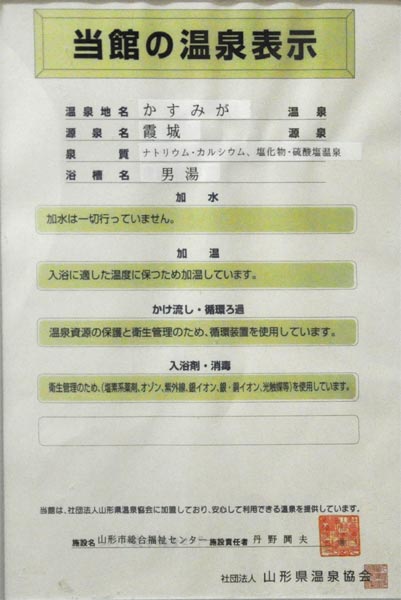 当館の温泉表示
温泉地名 かすみが 温泉
源泉名 霞城 源泉
泉質 ナトリウム・カルシウム、塩化物・硫酸塩温泉
浴槽名 男湯
加水
加水は一切行っていません。
加温
入浴に適した温度に保つため加温しています。
かけ流し・循環ろ過
温泉資源の保護と衛生管理のため、循環装置を使用しています。
入浴剤・消毒
衛生管理のため、(塩素系薬剤、オゾン、紫外線、銀イオン、銀・銅イオン、光触媒等)を使用しています。
当館は、社団法人山形県温泉協会に加盟しており、安心して利用できる温泉を提供しています。
施設名 山形市総合福祉センター 施設責任者 丹野 夫
社団法人 山形県温泉協会